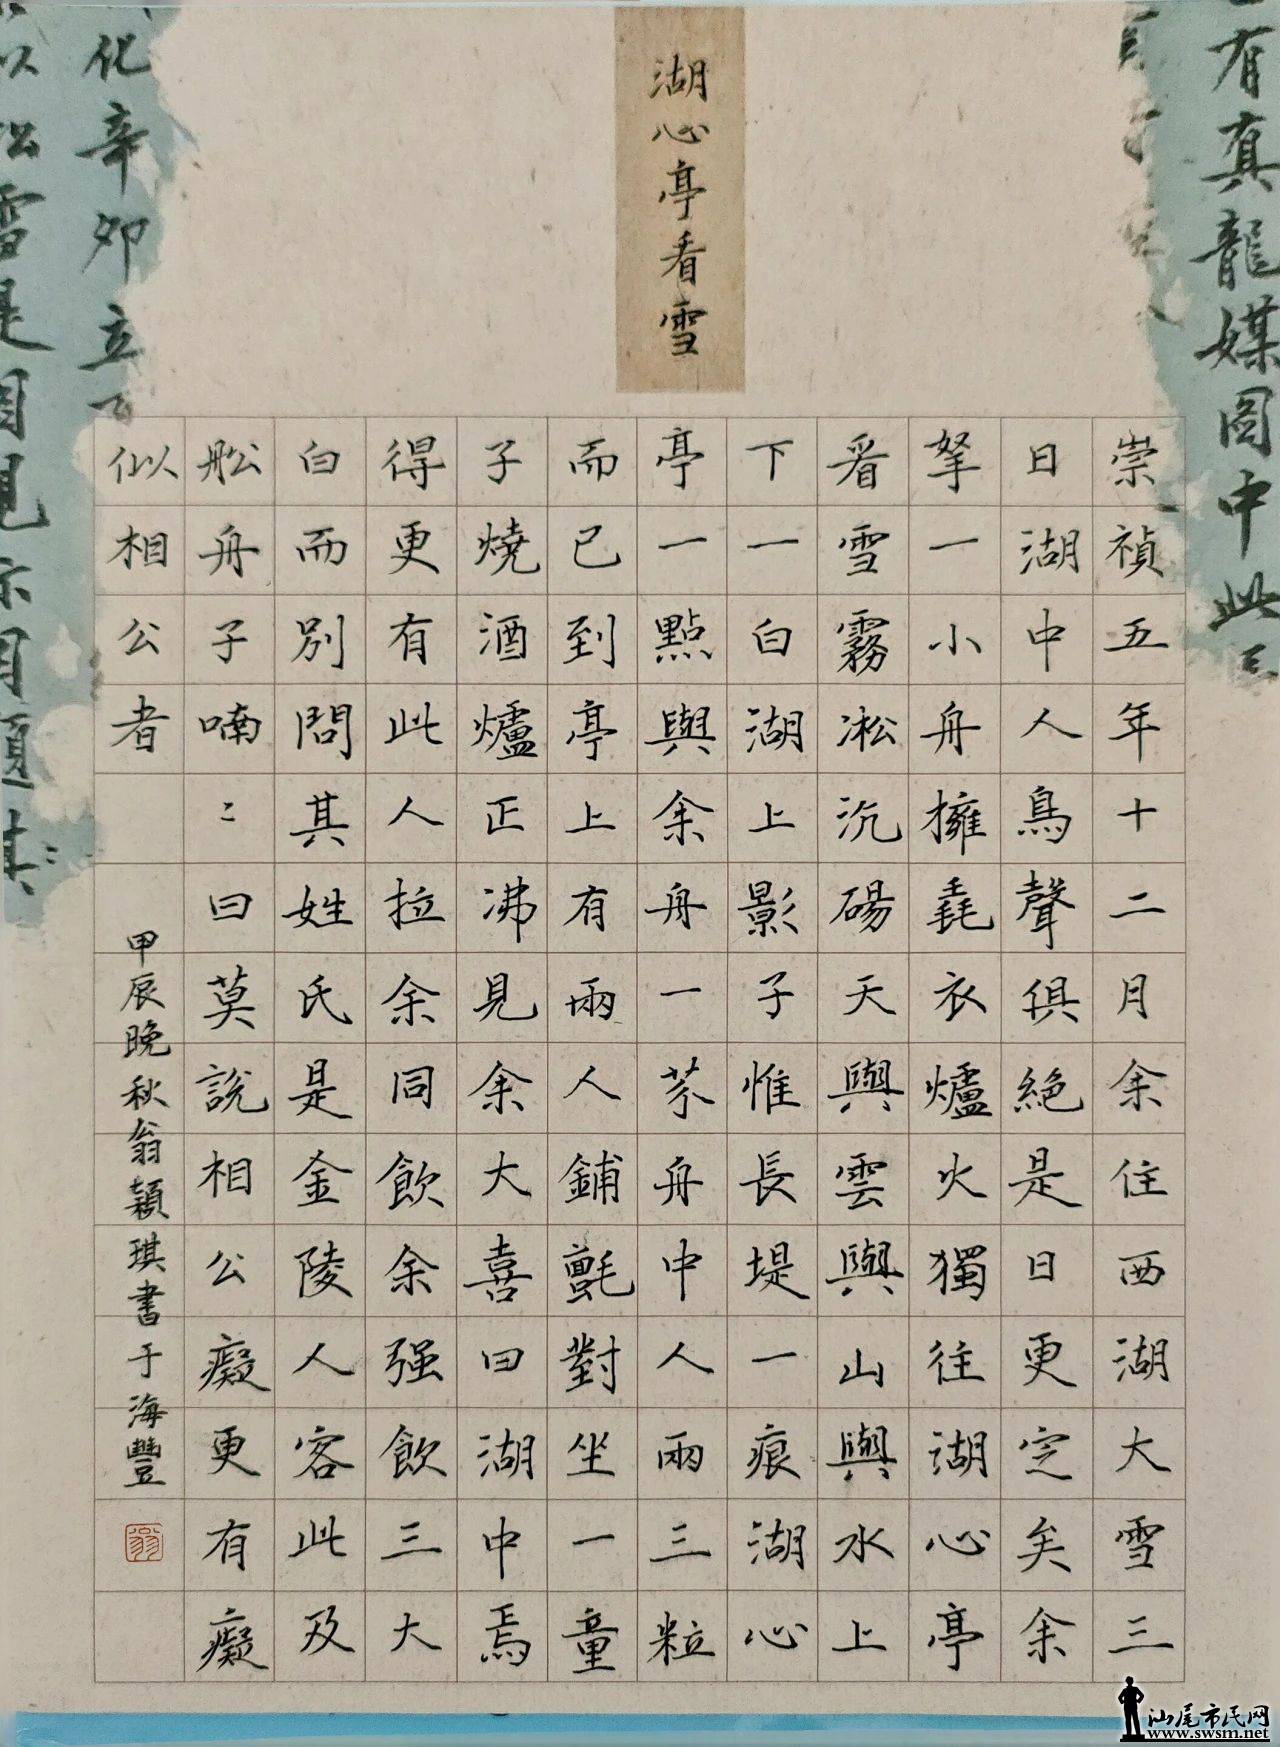 湖心亭看雪
有真龍媒圖中此
崇禎五年十二月余住西湖大雪三
日湖中人鳥聲俱絕是日更定矣余
拏一小舟擁毳衣爐火獨往湖心亭
看雪霧凇沆碭天與雲與山與水上
下一白湖上影子惟長堤一痕湖心
亭一點與余舟一芥舟中人兩三粒
而已到亭上有兩人鋪氈對坐一童
子燒酒爐正沸見余大喜曰湖中焉
得更有此人拉余同飲余强飲三大
白而別問其姓氏是金陵人客此及
舩舟子喃〻曰莫說相公癡更有癡
似相公者
甲辰晚秋翁穎琪書于海豐
翁
化辛卯立
以松雪是圖見示因題其
汕尾市民网
www.swsm.net